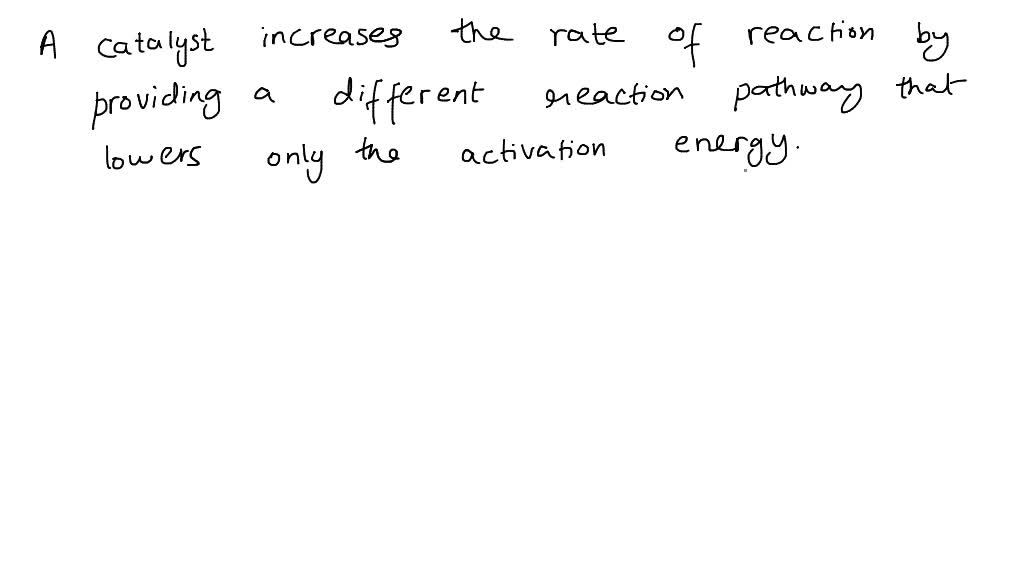 A catalyst increases the rate of reaction by
providing a different reaction pathway that
lowers only the activation energy.